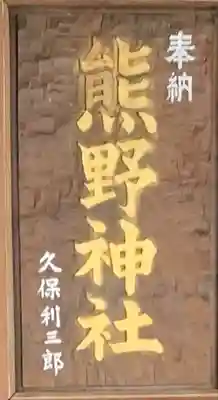 奉納
熊野神社
久保利三郎